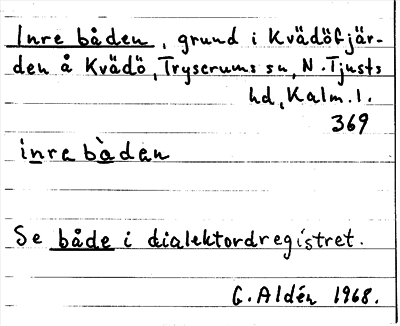 Inre båden, grund i Kvädöfjär-
den å Kvädö, Tryserums sn, N. Tjusts
hd, Kalm. l.
369
inre bàden
Se både i dialektordregistret.
G. Aldén 1968.